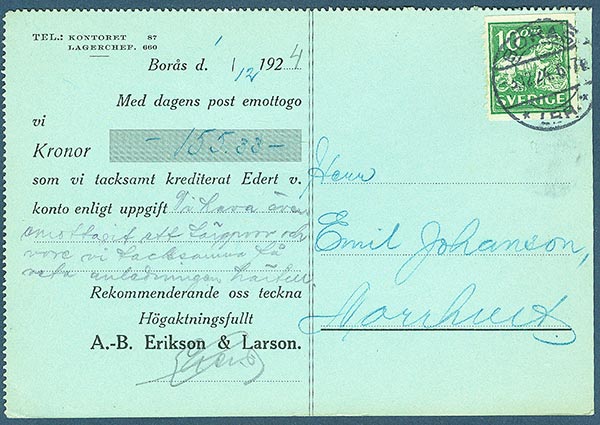 TEL.: KONTORET 87
LAGERCHEF. 660
Borås d. 1/12 1924
Med dagens post emottogo
vi
Kronor - 155.33 -
som vi tacksamt krediterat Edert v.
konto enligt uppgift Vi hava även
emottagit ett och
vore vi tacksamma få
veta anledningen härtill
Rekommenderande oss teckna
Högaktningsfullt
A.-B. Erikson & Larson.
10
SVERIGE
BORÅS
Herr
Emil Johanson,